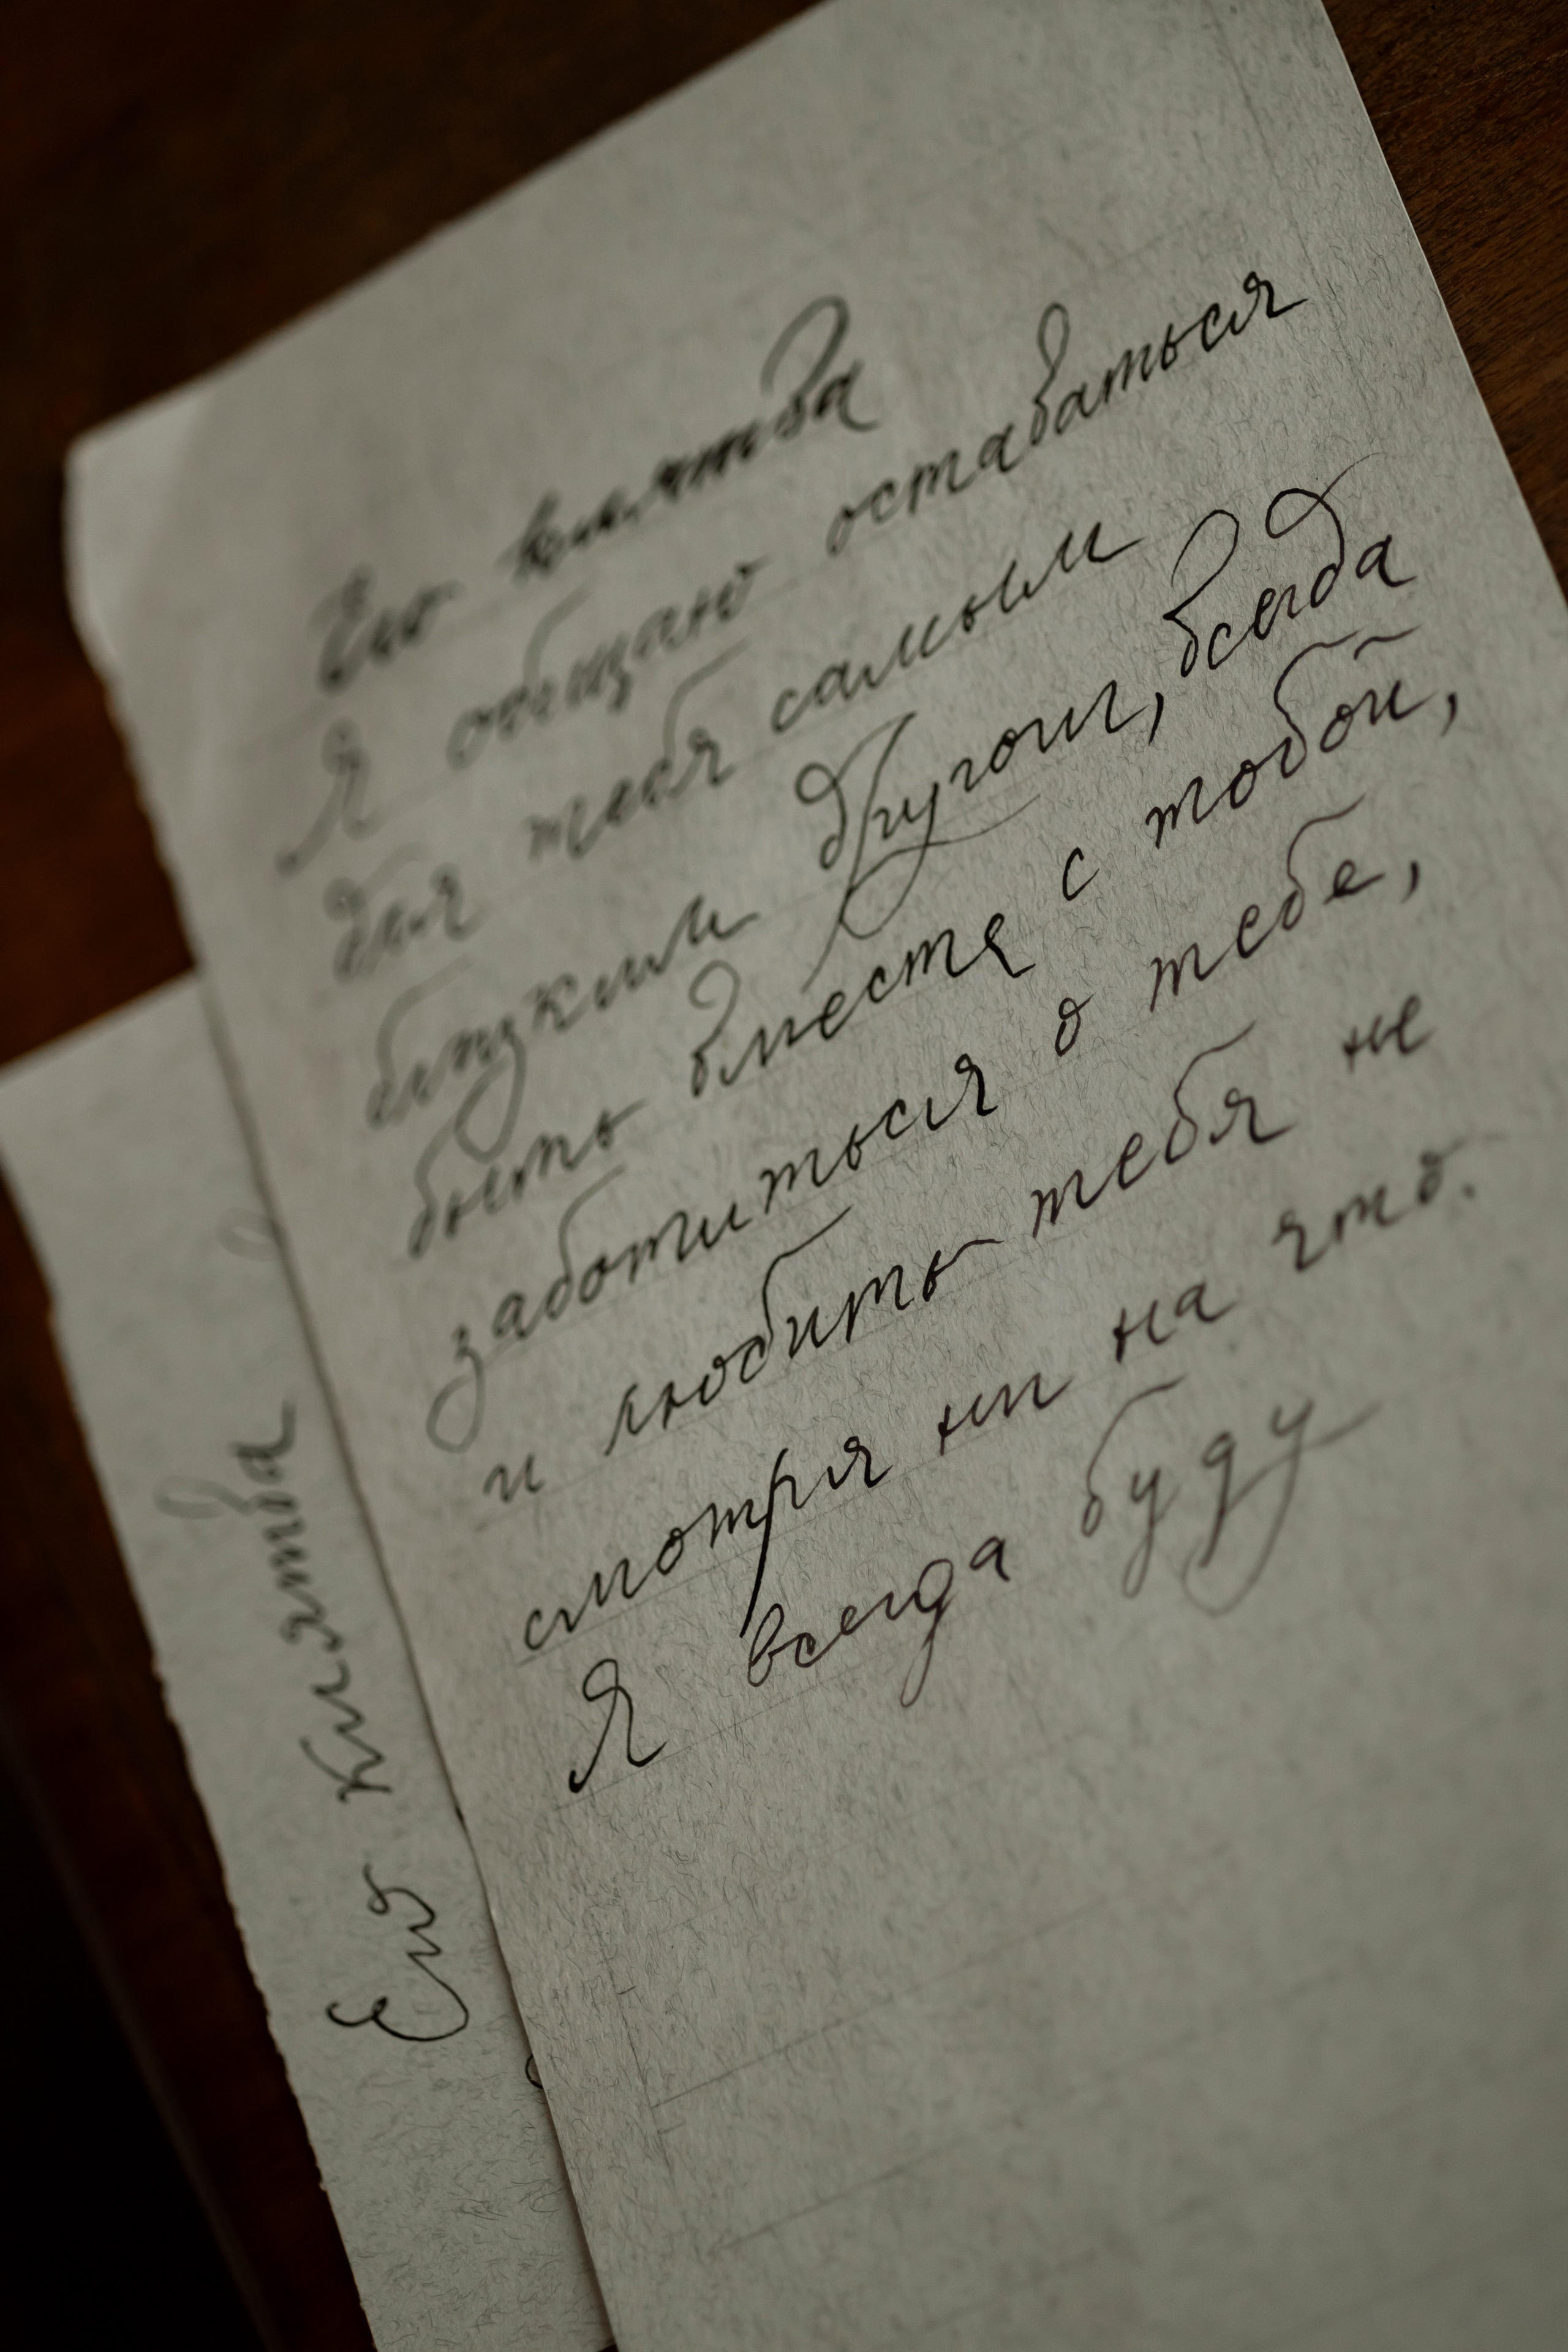 Его клятва
Я обещаю оставаться
для тебя самым
близким другом, всегда
быть вместе с тобой,
заботиться о тебе,
и любить тебя не
смотря ни на что.
Я всегда буду
Его Клятва